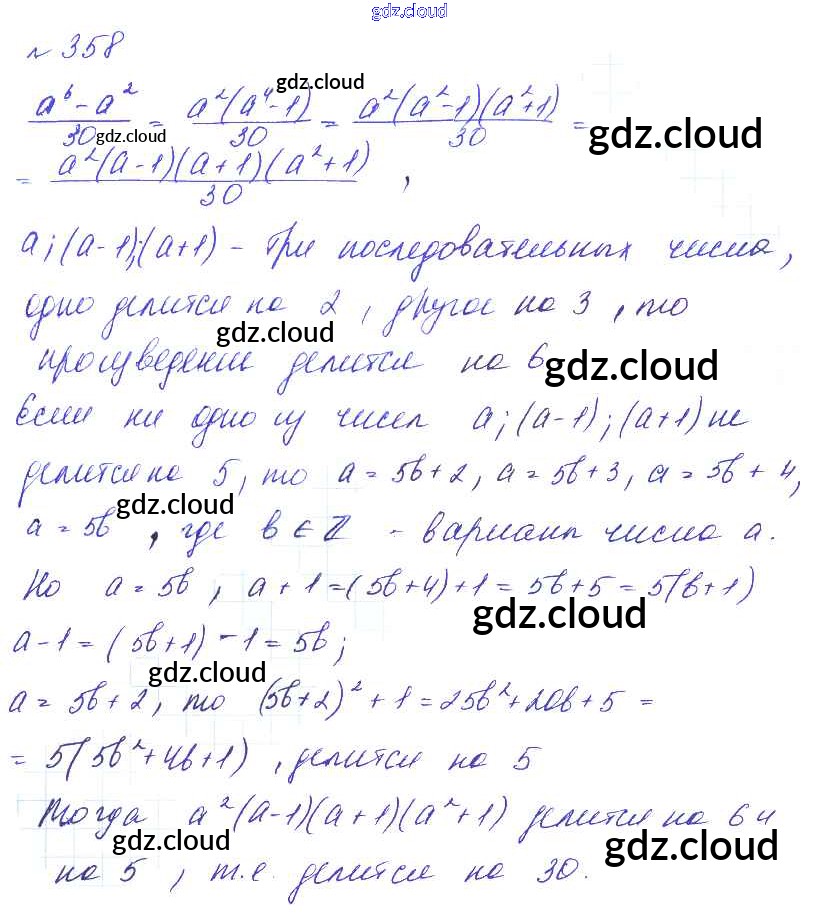 gdz.cloud
№ 358
(a⁶ - a²)/30 = (a²(a⁴-1))/30 = (a²(a²-1)(a²+1))/30 =
gdz.cloud
gdz.cloud
gdz.cloud
= (a²(a-1)(a+1)(a²+1))/30 ,
a; (a-1); (a+1) - три последовательных числа,
одно делится на 2, другое на 3, то
gdz.cloud
произведение делится на 6
gdz.cloud
Если ни одно из чисел a; (a-1); (a+1) не
делится на 5, то a = 5b+2, a = 5b+3, a = 5b+4,
gdz.cloud
a = 5b , где b ∈ Z - вариант числа a.
Но a = 5b, a+1 = (5b+4)+1 = 5b+5 = 5(b+1)
gdz.cloud
a-1 = (5b+1) - 1 = 5b;
gdz.cloud
a = 5b+2, то (5b+2)² + 1 = 25b² + 20b + 5 =
= 5(5b²+4b+1), делится на 5
Тогда a²(a-1)(a+1)(a²+1) делится на 6 и
gdz.cloud
gdz.cloud
на 5, т.е. делится на 30.